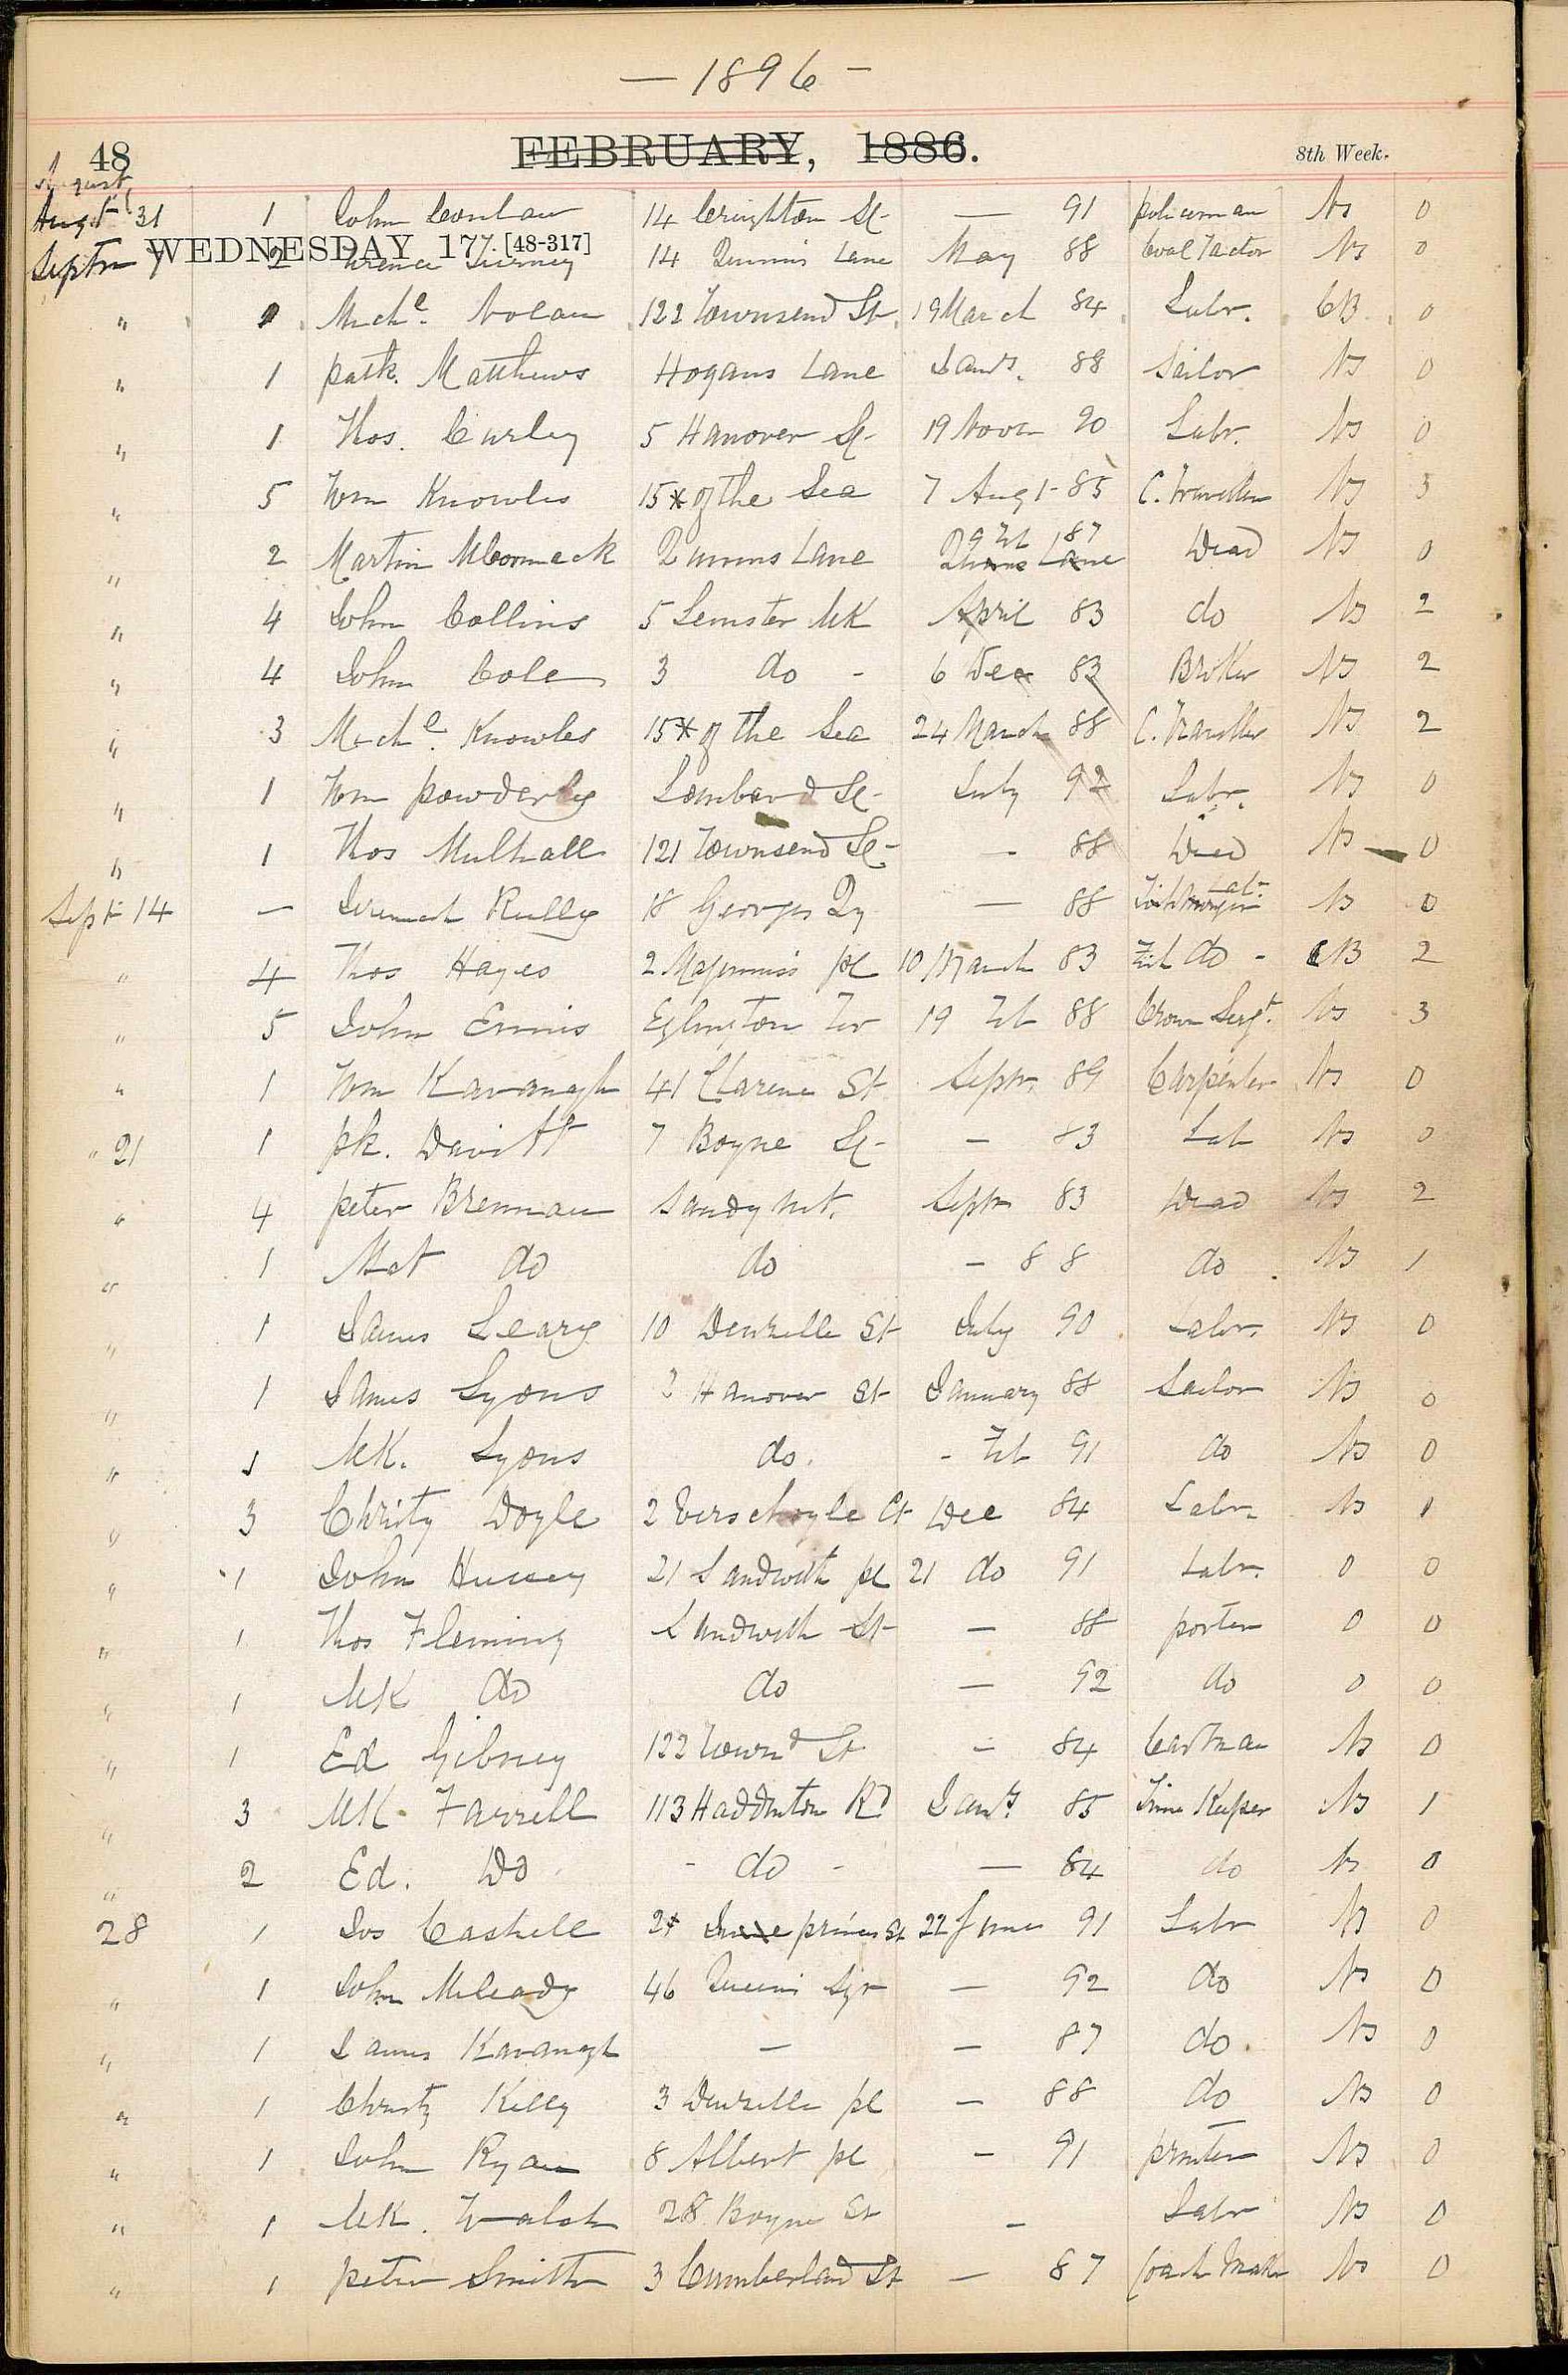 — 1896 —
48 FEBRUARY, 1886. 8th Week.
August
Augt 31 1 John Conlan 14 Creighton St — 91 policeman NS 0
WEDNESDAY 17. [48-317]
Septm 7 2 Tierney 14 Queens Lane May 88 Coal Factor NS 0
" 1 Michl. Nolan 122 Townsend St 19 March 84 Labr. CB 0
" 1 patk. Matthews Hogans Lane Jany. 88 Sailor NS 0
" 1 Thos. Curley 5 Hanover St 19 Novr 90 Labr. NS 0
" 5 Wm Knowles 15 * of the Sea 7 Augt 85 C. Traveller NS 3
" 2 Martin McCormack Quinns Lane 9 Feb 87 Quinns Lane Dead NS 0
" 4 John Collins 5 Leinster Mk April 83 do NS 2
" 4 John Cole 3 do - 6 Dec 83 Broker NS 2
" 3 Michl. Knowles 15 * of the Sea 24 March 88 C. Traveller NS 2
" 1 Wm powderly Lombard St July 92 Labr. NS 0
" 1 Thos Mulhall 121 Townsend St — 88 Dead NS — 0
Sept 14 — Jeremiah Reilly 18 Georges Qy — 88 NS 0
" 4 Thos Hayes 2 Magennis pl 10 March 83 do - CB 2
" 5 John Ennis Eglington Ter 19 Feb 88 Crown Sergt. NS 3
" 1 Wm Kavanagh 41 Clarence St Septr. 89 Carpenter NS 0
" 21 1 pk. Davitt 7 Boyne St — 83 Lab NS 0
" 4 peter Brennan Sandymt. Septr 83 Dead NS 2
" 1 Mat do do — 88 do NS 1
" 1 James Leary 10 Denzille St July 90 Labr. NS 0
" 1 James Lyons 2 Hanover St January 88 Sailor NS 0
" 1 MK. Lyons do. - Feb 91 do NS 0
" 3 Christy Doyle 2 Verschoyle Ct Dec 84 Labr. NS 1
" 1 John Hussey 21 Sandwith pl 21 do 91 Labr. 0 0
" 1 Thos Fleming Sandwith St — 88 porter 0 0
" 1 MK do do — 92 do 0 0
" 1 Ed Gibney 122 Townd St — 84 Cartman NS 0
" 3 MK Farrell 113 Haddinton Rd Jany. 85 Time Keeper NS 1
" 2 Ed. Do - do - — 84 do NS 0
28 1 Jos Cashell 24 princes St 22 June 91 Labr NS 0
" 1 John McCeady 46 Queens Sqr — 92 do NS 0
" 1 James Kavanagh — — 87 do. NS 0
" 1 Christy Kelly 3 Denzille pl — 88 do NS 0
" 1 John Ryan 8 Albert pl — 91 printer NS 0
" 1 MK. Walsh 28 Boyne St — Labr NS 0
" 1 peter Smith 3 Cumberland St — 87 Coach Maker NS 0